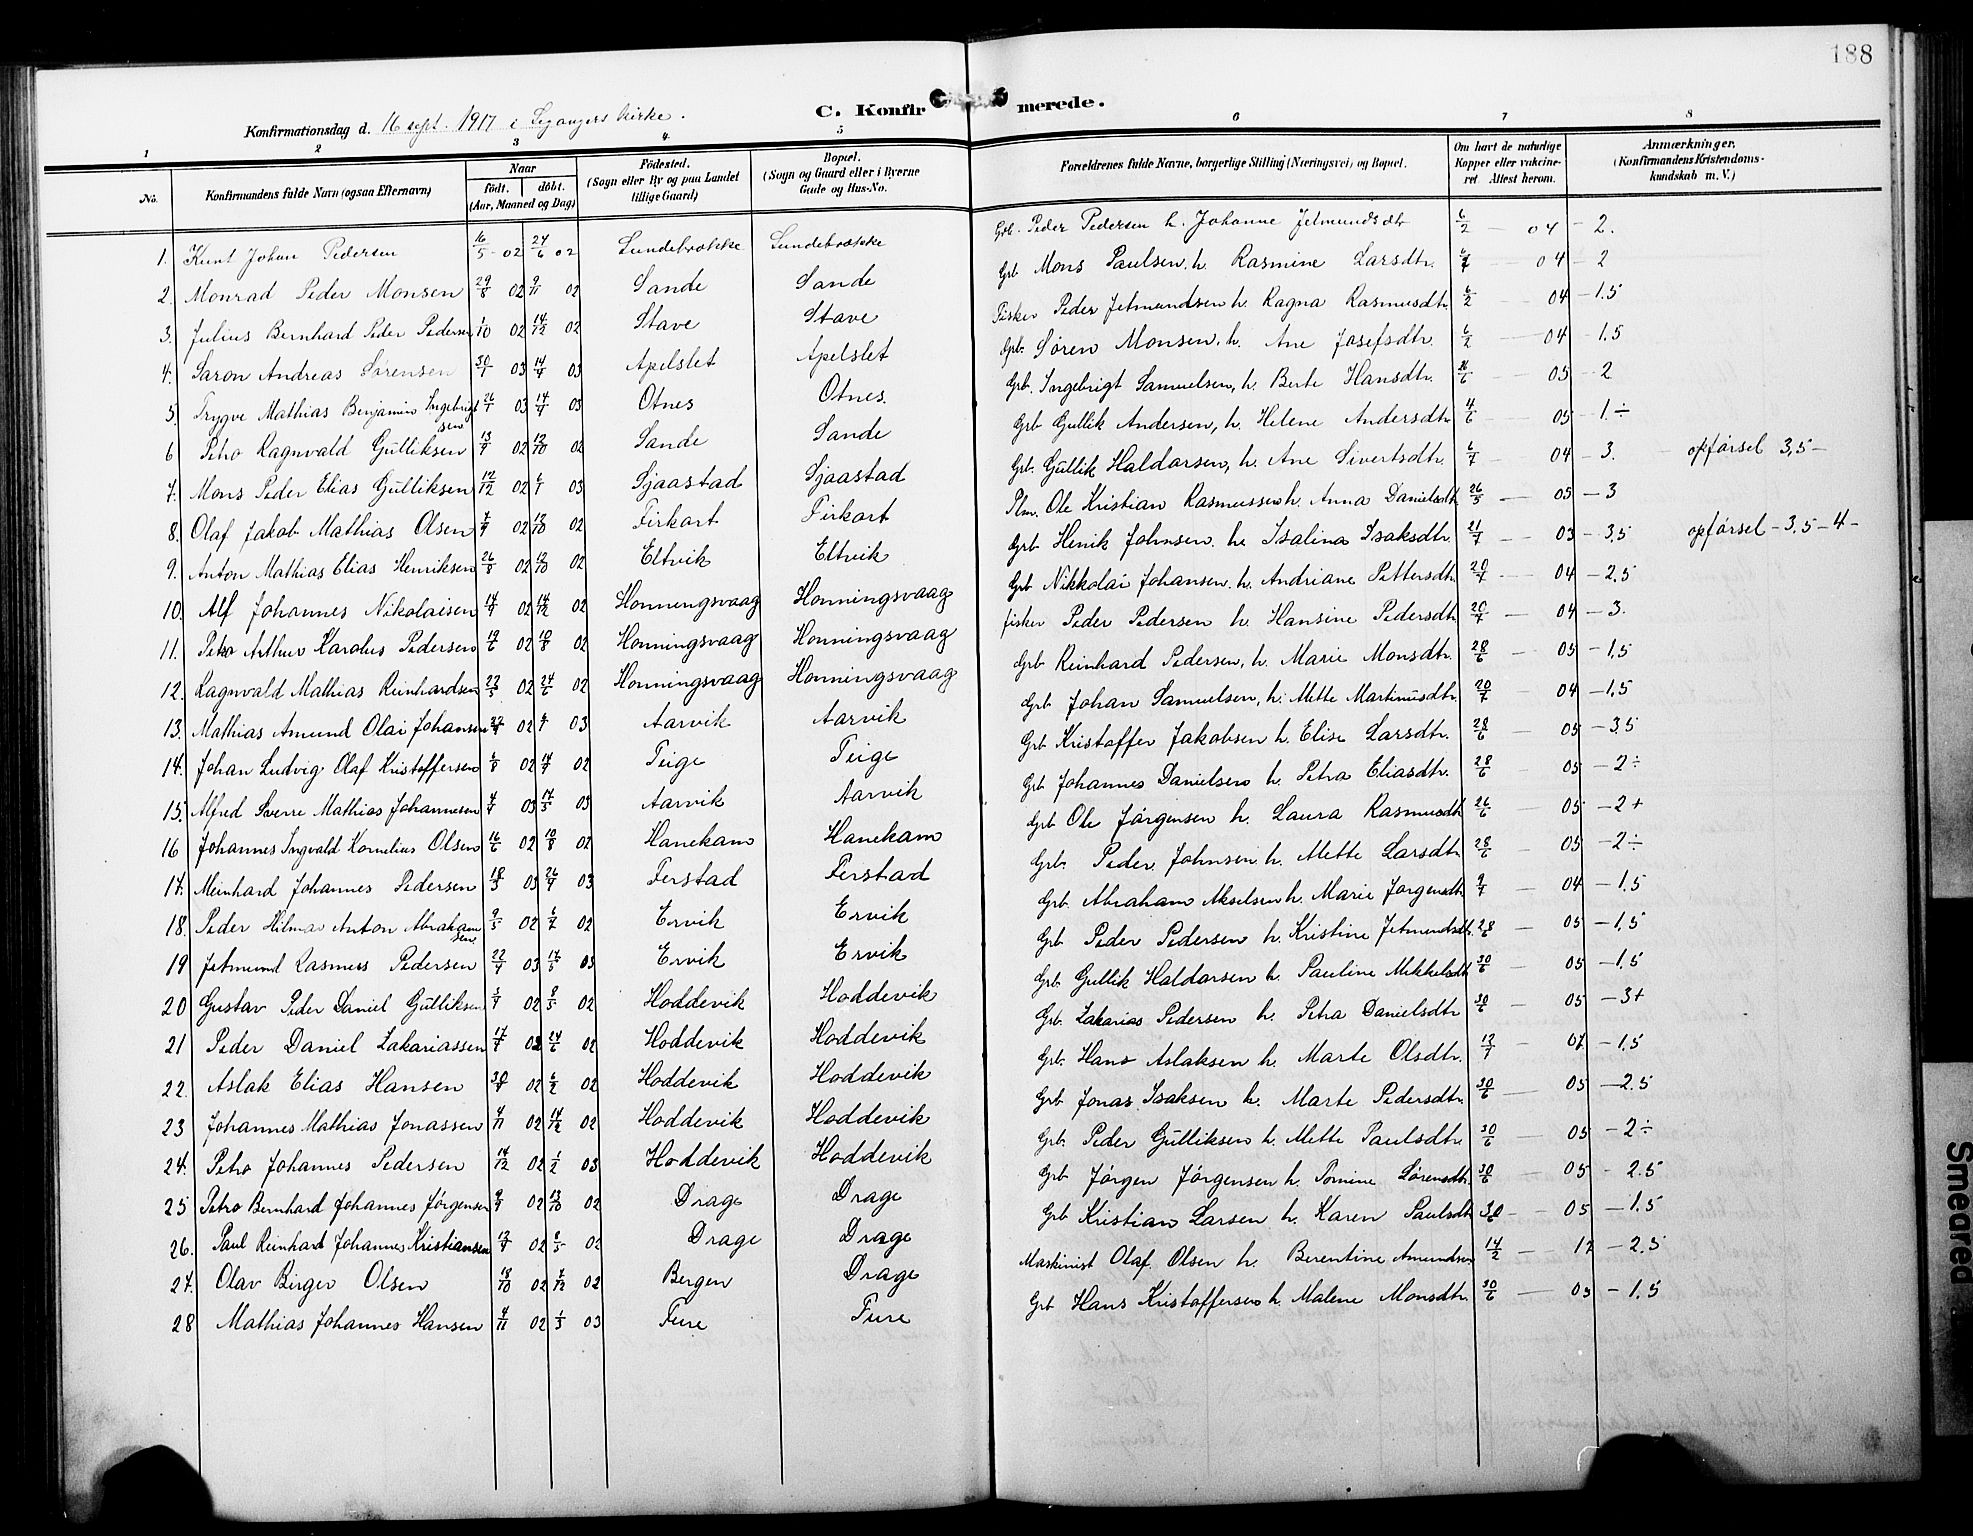 188
C. Konfirmerede.
Konfirmationsdag d. 16 sept. 1917 i Leganger kirke.
1 2 3 4 5 6 7 8
No. Konfirmandens fulde Navn (ogsaa Efternavn) Naar født. døbt. (Aar, Maaned og Dag) Fødested. (Sogn eller By og paa Landet tillige Gaard) Bopæl. (Sogn og Gaard eller i Byerne Gade og Hus-No. Forældrenes fulde Navne, borgerlige Stilling (Næringsvei) og Bopæl. Om havt de naturlige Kopper eller vakcineret Attest herom. Anmærkninger, (Konfirmandens Kristendomskundskab m. V.)
1. Knut Johan Pedersen 16/5 - 02 24/6 02 Lundebrekke Lundebrekke Grb. Peder Pedersen h. Johanne Jetmundsdtr 6/2 — 04 — 2.
2. Monrad Peder Monsen 29/8 02 9/11 02 Sande Sande Grb Mons Paulsen. h. Rasmine Larsdtr. — 04 — 2
3. Julius Bernhard Peder Pedersen 1/10 02 14/12 02 Stave Stave Fisker Peder Jetmundsen h. Ragna Rasmusdtr 6/2 — 04 — 1.5
4. Saron Andreas Sørensen 30/1 03 14/4 03 Apelslet Apelslet Grb. Søren Monsen, h. Ane Josefsdtr. 6/2 — 04 — 1.5
5. Trygve Mathias Benjamin Ingebrigtsen 26/1 03 14/4 03 Otnes Otnes. Grb. Ingebrigt Samuelsen, h. Berte Hansdtr. — 05 — 2
6 Petro Ragnvald Gulliksen 13/9 02 12/10 02 Sande Sande Grb Gullik Andersen, h. Helene Andersdtr 4/6 — 05 — 1.÷
7. Mons Peder Elias Gulliksen 12/12 02 6/1 03 Sjaastad Sjaastad Grb. Gullik Haldorsen, h. Ane Sivertsdtr. 6/7 — 04 — 3. — opførsel 3,5 —
8. Olaf Jakob Mathias Olsen 7/9 02 12/10 02 Firkart Firkart Plm. Ole Kristian Rasmussen h. Anna Danielsdtr 26/5 — 05 — 3
9. Anton Mathias Elias Henriksen 26/8 02 12/10 02 Eltvik Eltvik Grb Henik Johnsen. h. Isalina Isaksdtr. 21/7 — 03 — 3,5 opførsel — 3.5 — 4 —
10. Alf Johannes Nikolaisen 14/9 02 14/12 02 Honningsvaag Honningsvaag Grb Nikkolai Johansen. h. Andriane Pettersdtr 20/7 — 04 — 2.5
11. Petro Arthur Karolus Pedersen 19/6 02 10/8 02 Honningsvaag Honningsvaag fisker Peder Pedersen h. Hansine Pedersdtr 20/7 — 04 — 3.
12. Ragnvald Mathias Reinhardsen 22/5 02 24/6 02 Honningsvaag Honningsvaag Grb Reinhard Pedersen, h. Marie Monsdtr. 28/6 — 05 — 1.5
13. Mathias Amund Olai Johansen 02 03 Aarvik Aarvik Grb Johan Samuelsen, h. Mette Martinusdtr 20/7 — 04 — 1.5
14. Johan Ludvig Olaf Kristoffersen 02 02 Teige Teige Grb Kristoffer Jakobsen h. Elise Larsdtr. 28/6 — 05 — 3.5
15. Alfred Sverre Mathias Johannesen 03 17/5 03 Aarvik Aarvik Grb Johannes Danielsen h. Petra Eliasdtr. 28/6 — 05 — 2÷
16 Johannes Ingvald Kornelius Olsen 16/6 02 10/8 02 Hanekam Hanekam Grb Ole Jørgensen h. Laura Rasmusdtr 26/6 — 05 — 2+
17. Meinhard Johannes Pedersen 18/3 03 26/4 03 Ferstad Ferstad Grb. Peder Johnsen. h. Mette Larsdtr. 28/6 — 05 — 2÷
18. Peder Hilmar Anton Abrahamsen 9/5 02 6/7 02 Ervik Ervik Grb. Abraham Akselsen h. Marie Jørgensdtr 9/7 — 04 — 1.5
19 Jetmund Rasmus Pedersen 22/4 03 17/5 03 Ervik Ervik Grb Peder Pedersen h. Kristine Jetmundsdtr. 28/6 — 05 — 1.5
20 Gustav Peder Daniel Gulliksen 02 8/5 02 Hoddevik Hoddevik Grb Gullik Haldorsen h. Pauline Mikkelsdtr 30/6 — 05 — 1.5
21 Peder Daniel Zakariassen 02 24/6 02 Hoddevik Hoddevik Grb. Zakarias Pedersen h. Petra Danielsdtr 30/6 — 05 — 3+
22. Aslak Elias Hansen 02 02 Hoddevik Hoddevik Grb. Hans Aslaksen h. Marte Olsdtr. — — 1.5
23 Johannes Mathias Jonassen 4/11 02 14/12 02 Hoddevik Hoddevik Grb Jonas Isaksen h. Marte Pedersdtr. 30/6 — 05 — 2.5
24. Petro Johannes Pedersen 14/12 02 1/2 03 Hoddevik Hoddevik Grb. Peder Gulliksen h. Mette Paulsdtr. 30/6 — 05 — 2÷
25 Petro Bernhard Johannes Jørgensen 9/9 02 12/10 02 Drage Drage Grb Jørgen Jørgensen h. Tomine Sørensdtr 30/6 — 05 — 2.5
26. Paul Reinhard Johannes Kristiansen 02 8/5 02 Drage Drage Grb Kristian Larsen h. Karen Paulsdtr 30/6 — 05 — 1.5
27. Olav Birger Olsen 18/10 02 7/12 02 Bergen Drage Maskinist Olaf Olsen h. Berentine Amundsen 14/2 — 17 — 2.5
28 Mathias Johannes Hansen 4/11 02 1/3 03 Fure Fure Grb Hans Kristoffersen h. Malene Monsdtr. 30/6 — 05 — 1.5
Smeared